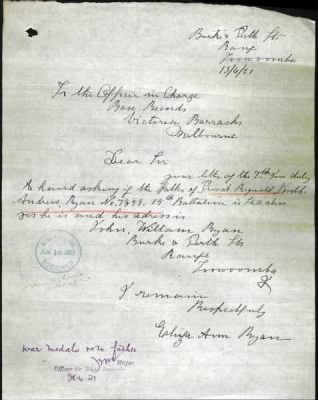 Burke & Perth Sts
Range
Toowoomba
13/6/21
To the Officer in Charge
Base Records
Victoria Barracks
Melbourne
Dear Sir
your letter of the 7th Inst duly
to hand asking if the Father of Privat Reginald
Andrew Ryan No. 15th Battalion is still alive
yes he is and his adress is
John. William Ryan
Burke & Perth Sts
Range
Toowoomba
I remain
Respectfuly
Eliza Ann Ryan
war medals to father
Major
Officer i/c Base Records
21